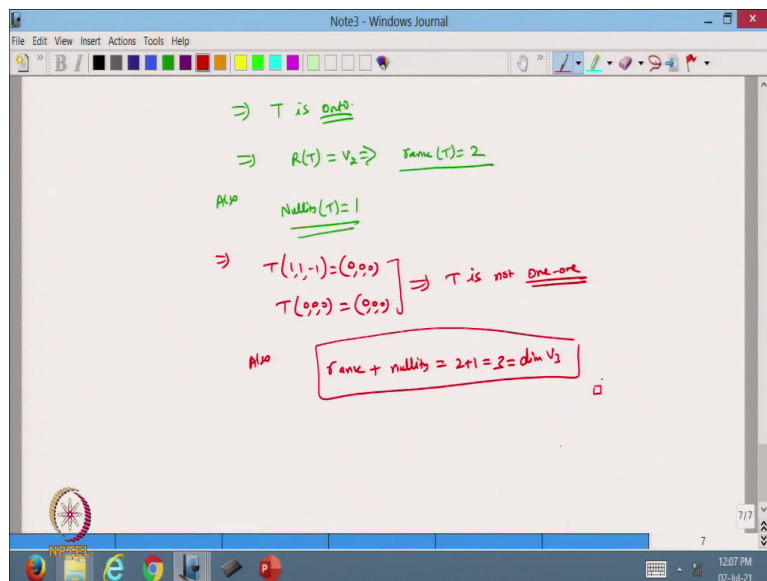 Note3 - Windows Journal
File Edit View Insert Actions Tools Help
B I
⇒ T is onto.
⇒ R(T) = V₂ ⇒ rank(T) = 2
Also Nullity(T) = 1
⇒ T(1,1,-1) = (0,0,0)
T(0,0,0) = (0,0,0) ] ⇒ T is not one-one
Also rank + nullity = 2+1 = 3 = dim V₃
7/7
7
NPTEL
12:07 PM
02-Jul-21